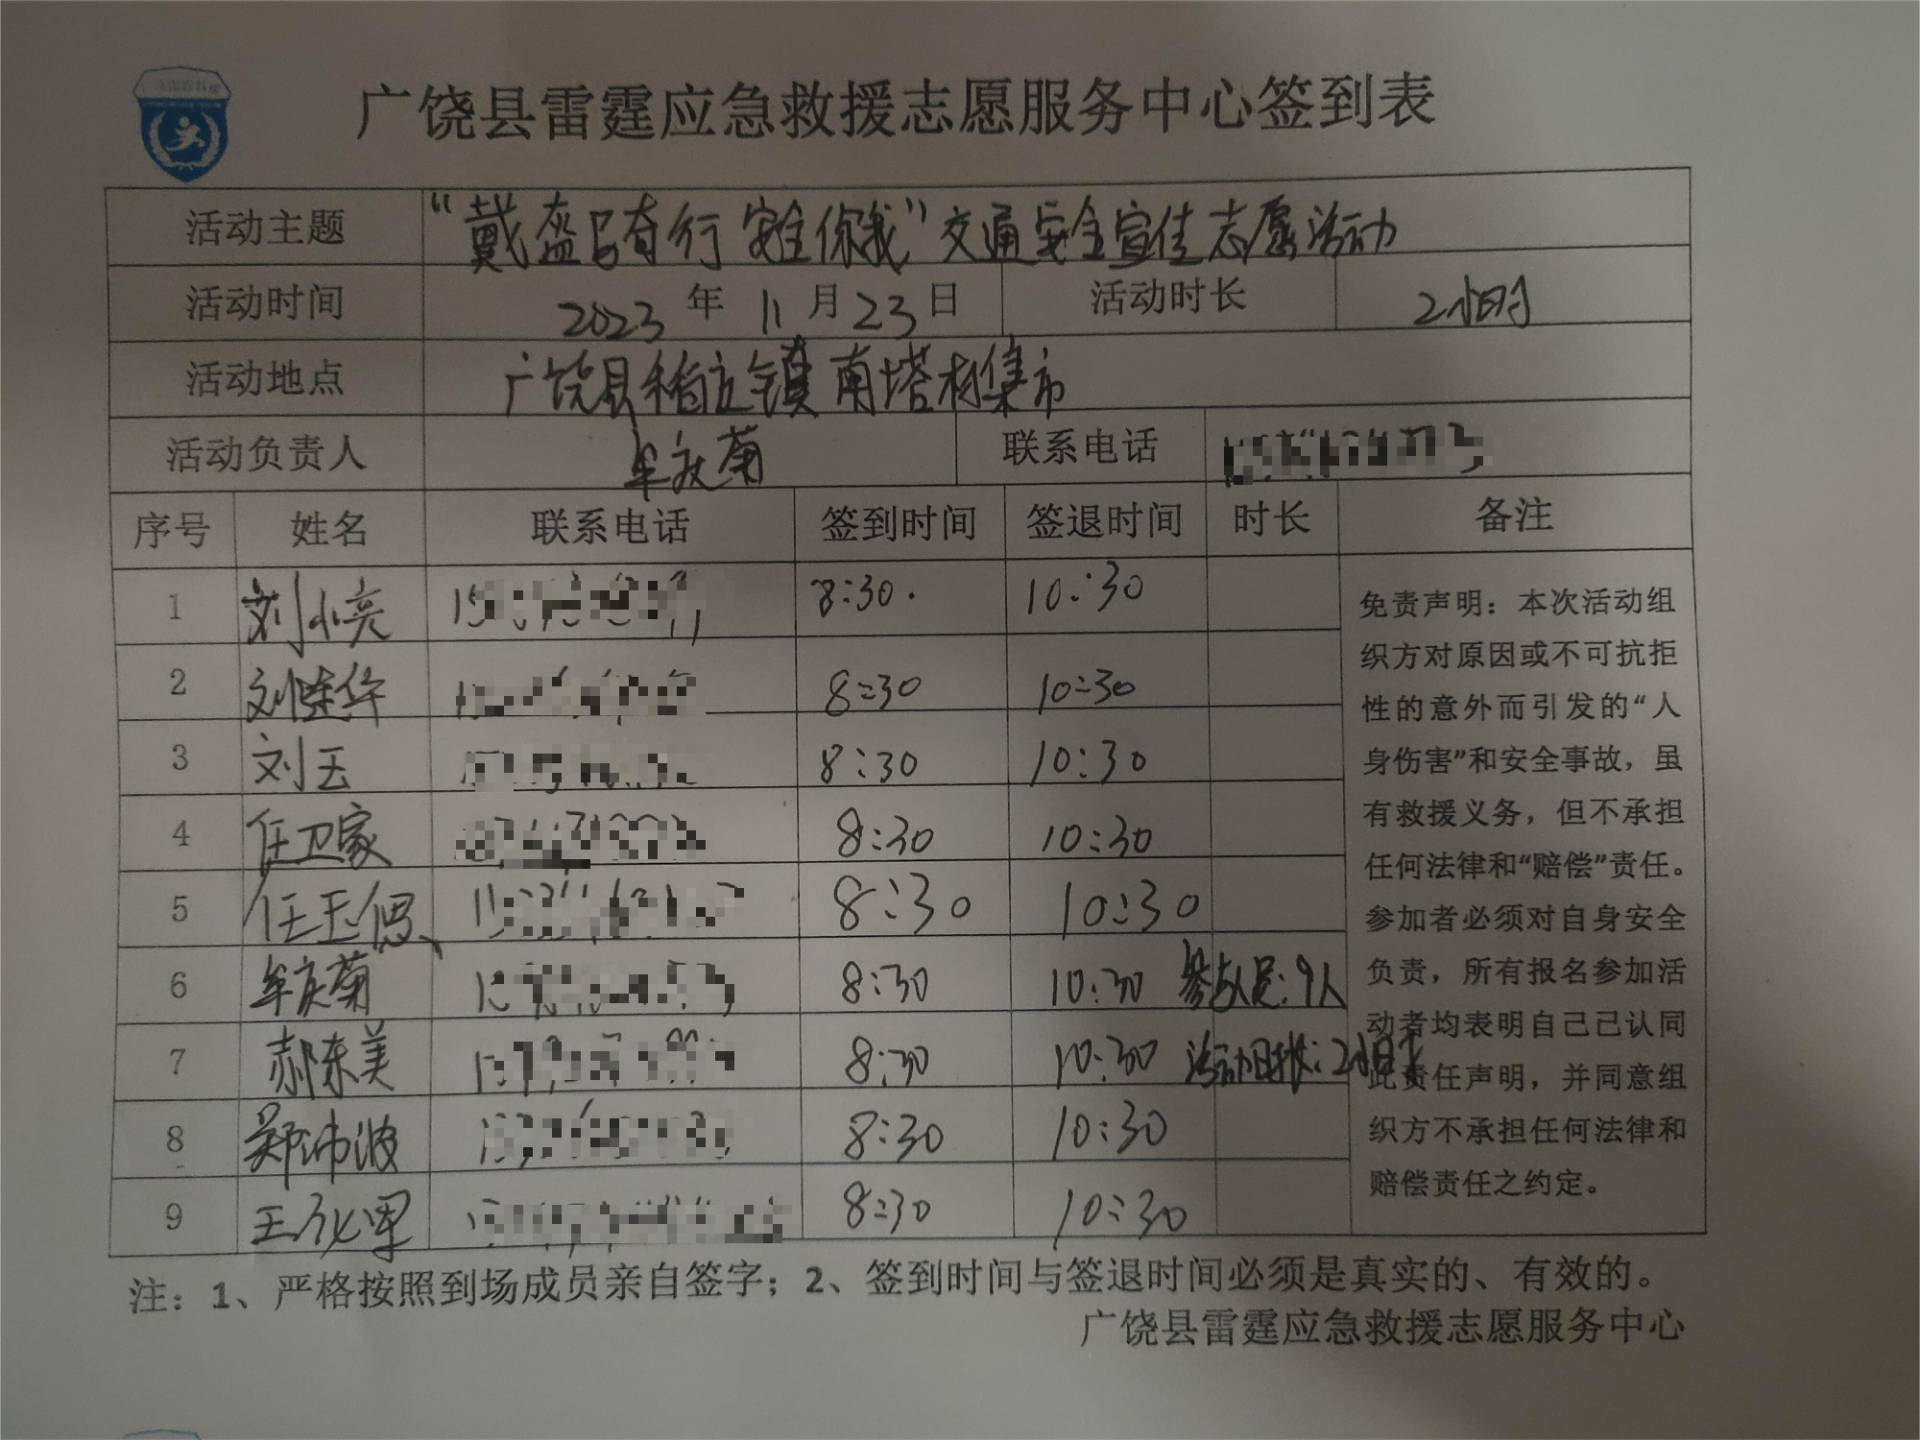 广饶县雷霆应急救援志愿服务中心签到表
活动主题 “戴盔骑行 安全你我”交通安全宣传志愿活动
活动时间 2023年11月23日 活动时长 2小时
活动地点 广饶县稻庄镇南塔村集市
活动负责人 牟庆菊 联系电话
序号 姓名 联系电话 签到时间 签退时间 时长 备注
1 刘小亮 8:30. 10:30
2 刘建华 8:30 10:30
3 刘玉 8:30 10:30
4 任卫家 8:30 10:30
5 任玉偲 8:30 10:30
6 牟庆菊 8:30 10:30 参与人员:9人
7 郝东美 8:30 10:30 活动时长:2小时
8 郑沛波 8:30 10:30
9 王 8:30 10:30
免责声明：本次活动组
织方对原因或不可抗拒
性的意外而引发的“人
身伤害”和安全事故，虽
有救援义务，但不承担
任何法律和“赔偿”责任。
参加者必须对自身安全
负责，所有报名参加活
动者均表明自己己认同
此责任声明，并同意组
织方不承担任何法律和
赔偿责任之约定。
注：1、严格按照到场成员亲自签字；2、签到时间与签退时间必须是真实的、有效的。
广饶县雷霆应急救援志愿服务中心